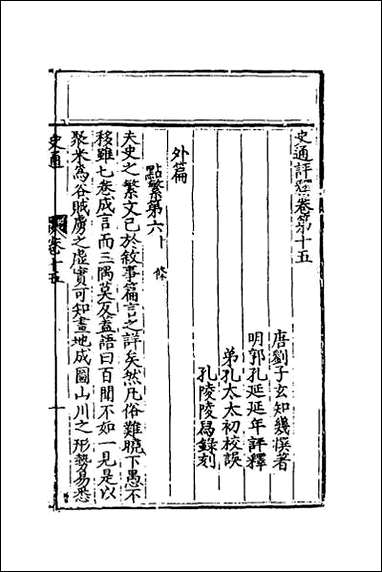 史通評釋卷第十五
唐劉子玄知幾撰著
明郭孔延延年評釋
弟孔太太初校誤
孔陵陵舄錄刻
外篇
點繁第六 條
夫史之繁文已於敘事篇言之詳矣然凡俗難曉下愚不
移雖七卷成言而三隅莫反蓋語曰百聞不如一見是以
聚米爲谷賊虜之虛實可知畫地成圖山川之形勢易悉
史通
卷之十五